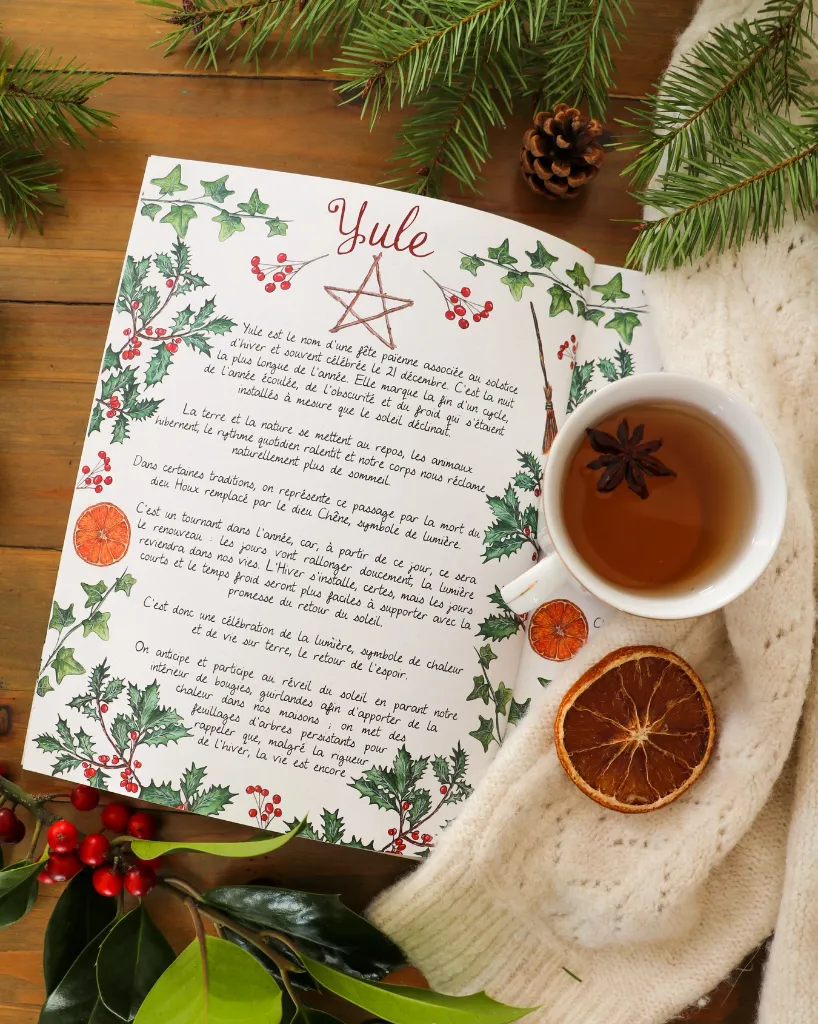 Yule
Yule est le nom d'une fête païenne associée au solstice
d'hiver et souvent célébrée le 21 décembre. C'est la nuit
la plus longue de l'année. Elle marque la fin d'un cycle,
de l'année écoulée, de l'obscurité et du froid qui s'étaient
installés à mesure que le soleil déclinait.
La terre et la nature se mettent au repos, les animaux
hibernent, le rythme quotidien ralentit et notre corps nous réclame
naturellement plus de sommeil.
Dans certaines traditions, on représente ce passage par la mort du
dieu Houx remplacé par le dieu Chêne, symbole de lumière.
C'est un tournant dans l'année, car, à partir de ce jour, ce sera
le renouveau : les jours vont rallonger doucement, la lumière
reviendra dans nos vies. L'Hiver s'installe, certes, mais les jours
courts et le temps froid seront plus faciles à supporter avec la
promesse du retour du soleil.
C'est donc une célébration de la lumière, symbole de chaleur
et de vie sur terre, le retour de l'espoir.
On anticipe et participe au réveil du soleil en parant notre
intérieur de bougies, guirlandes afin d'apporter de la
chaleur dans nos maisons ; on met des
feuillages d'arbres persistants pour
rappeler que, malgré la rigueur
de l'hiver, la vie est encore